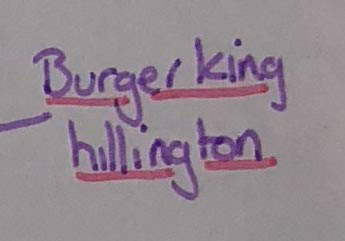 Burger king
hillington